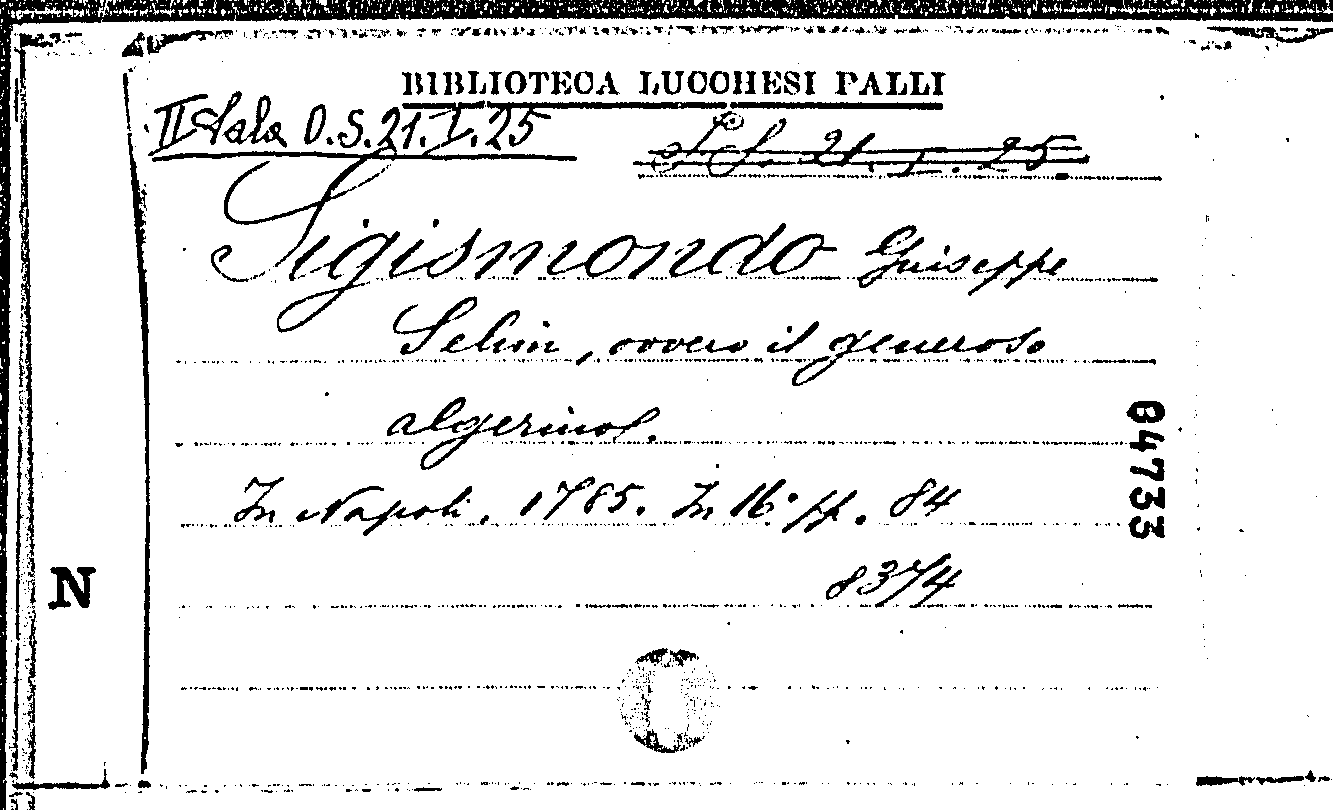 BIBLIOTECA LUCCHESI PALLI
II Sala O.S.21.I.25
21. I. 25.
Sigismondo Giuseppe
Selim, ovvero il generoso
algerino.
In Napoli, 1785. In 16.° pp. 84
8374
84733
N